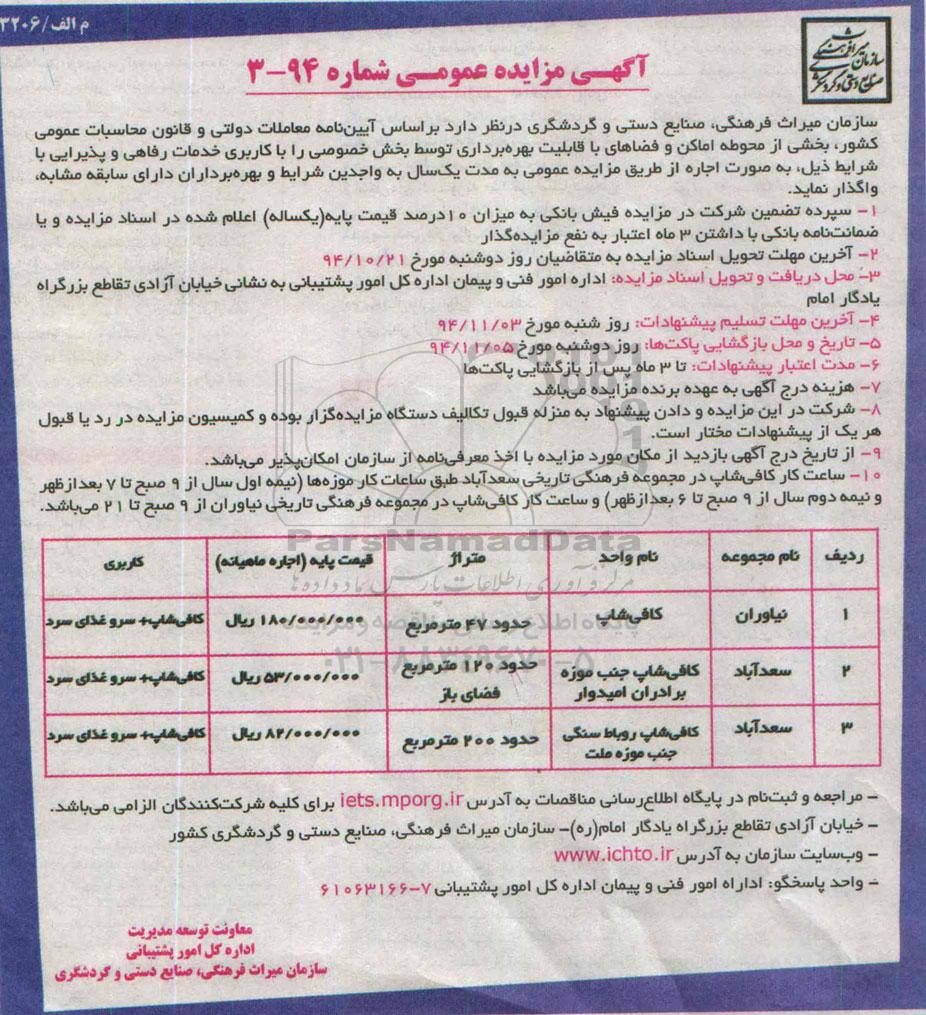 م الف/۳۲۰۶
سازمان میراث فرهنگی
صنایع دستی و گردشگری
آگهی مزایده عمومی شماره ۹۴-۳
سازمان میراث فرهنگی، صنایع دستی و گردشگری درنظر دارد براساس آیین‌نامه معاملات دولتی و قانون محاسبات عمومی
کشور، بخشی از محوطه اماکن و فضاهای با قابلیت بهره‌برداری توسط بخش خصوصی را با کاربری خدمات رفاهی و پذیرایی با
شرایط ذیل، به صورت اجاره از طریق مزایده عمومی به مدت یک‌سال به واجدین شرایط و بهره‌برداران دارای سابقه مشابه،
واگذار نماید.
۱- سپرده تضمین شرکت در مزایده فیش بانکی به میزان ۱۰درصد قیمت پایه(یکساله) اعلام شده در اسناد مزایده و یا
ضمانت‌نامه بانکی با داشتن ۳ ماه اعتبار به نفع مزایده‌گذار
۲- آخرین مهلت تحویل اسناد مزایده به متقاضیان روز دوشنبه مورخ ۹۴/۱۰/۲۱
۳- محل دریافت و تحویل اسناد مزایده: اداره امور فنی و پیمان اداره کل امور پشتیبانی به نشانی خیابان آزادی تقاطع بزرگراه
یادگار امام
۴- آخرین مهلت تسلیم پیشنهادات: روز شنبه مورخ ۹۴/۱۱/۰۳
۵- تاریخ و محل بازگشایی پاکت‌ها: روز دوشنبه مورخ ۹۴/۱۱/۰۵
۶- مدت اعتبار پیشنهادات: تا ۳ ماه پس از بازگشایی پاکت‌ها
۷- هزینه درج آگهی به عهده برنده مزایده می‌باشد
۸- شرکت در این مزایده و دادن پیشنهاد به منزله قبول تکالیف دستگاه مزایده‌گزار بوده و کمیسیون مزایده در رد یا قبول
هر یک از پیشنهادات مختار است.
۹- از تاریخ درج آگهی بازدید از مکان مورد مزایده با اخذ معرفی‌نامه از سازمان امکان‌پذیر می‌باشد.
۱۰- ساعت کار کافی‌شاپ در مجموعه فرهنگی تاریخی سعدآباد طبق ساعات کار موزه‌ها (نیمه اول سال از ۹ صبح تا ۷ بعدازظهر
و نیمه دوم سال از ۹ صبح تا ۶ بعدازظهر) و ساعت کار کافی‌شاپ در مجموعه فرهنگی تاریخی نیاوران از ۹ صبح تا ۲۱ می‌باشد.
ParsNamadData
ردیف نام مجموعه نام واحد متراژ قیمت پایه (اجاره ماهیانه) کاربری
مرکز فرآوری اطلاعات پارس نماد داده‌ها
۱ نیاوران کافی‌شاپ حدود ۴۷ مترمربع ۱۸۰/۰۰۰/۰۰۰ ریال کافی‌شاپ+ سرو غذای سرد
پایگاه اطلاع رسانی مناقصه و مزایده
۰۲۱-۸۸۳۴۹۶۷۰-۵
۲ سعدآباد کافی‌شاپ جنب موزه برادران امیدوار حدود ۱۲۰ مترمربع فضای باز ۵۳/۰۰۰/۰۰۰ ریال کافی‌شاپ+ سرو غذای سرد
۳ سعدآباد کافی‌شاپ روباط سنگی جنب موزه ملت حدود ۲۰۰ مترمربع ۸۲/۰۰۰/۰۰۰ ریال کافی‌شاپ+ سرو غذای سرد
- مراجعه و ثبت‌نام در پایگاه اطلاع‌رسانی مناقصات به آدرس iets.mporg.ir برای کلیه شرکت‌کنندگان الزامی می‌باشد.
- خیابان آزادی تقاطع بزرگراه یادگار امام(ره)- سازمان میراث فرهنگی، صنایع دستی و گردشگری کشور
- وب‌سایت سازمان به آدرس www.ichto.ir
- واحد پاسخگو: اداراه امور فنی و پیمان اداره کل امور پشتیبانی ۷-۶۱۰۶۳۱۶۶
معاونت توسعه مدیریت
اداره کل امور پشتیبانی
سازمان میراث فرهنگی، صنایع دستی و گردشگری